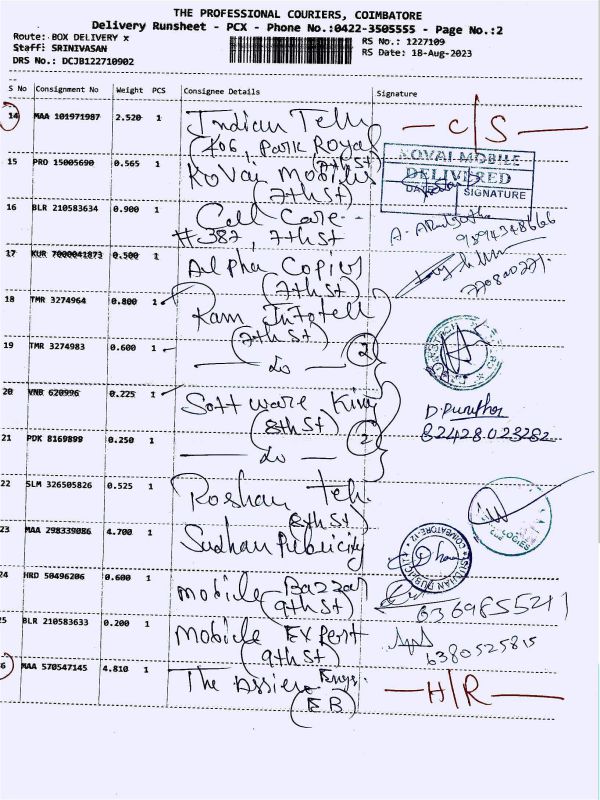 THE PROFESSIONAL COURIERS, COIMBATORE
Delivery Runsheet - PCX - Phone No.:0422-3505555 - Page No.:2
Route: BOX DELIVERY x
RS No.: 1227109
Staff: SRINIVASAN
RS Date: 18-Aug-2023
DRS No.: DCJB122710902
S No Consignment No Weight PCS Consignee Details Signature
14 MAA 101971987 2.520 1 Indian Tele C/S
706, Park Royal
(7th St)
15 PRO 15005690 0.565 1 Kovai Mobiles
(7th St)
KOVAI MOBILE
DELIVERED
DATE SIGNATURE
16 BLR 210583634 0.900 1 Cell Care
#387, 7th St
17 KUR 7000041873 0.500 1 Alpha Copier
(7th St)
18 TMR 3274964 0.800 1 Ram Infotell
(7th St)
19 TMR 3274983 0.600 1 Do 2
20 VNB 620996 0.225 1 Software King
(8th St)
21 PDK 8169899 0.250 1 Do 2
82428 023282
22 SLM 326505826 0.525 1 Roshan Tele
(8th St)
23 MAA 298339086 4.700 1 Sudhan Publicity
COIMBATORE-12
24 HRD 50496206 0.600 1 Mobile Bazzar
(9th St)
6369855211
25 BLR 210583633 0.200 1 Mobile Expert
(9th St)
6380525815
26 MAA 570547145 4.810 1 The Assie Engr. H/R
(EB)